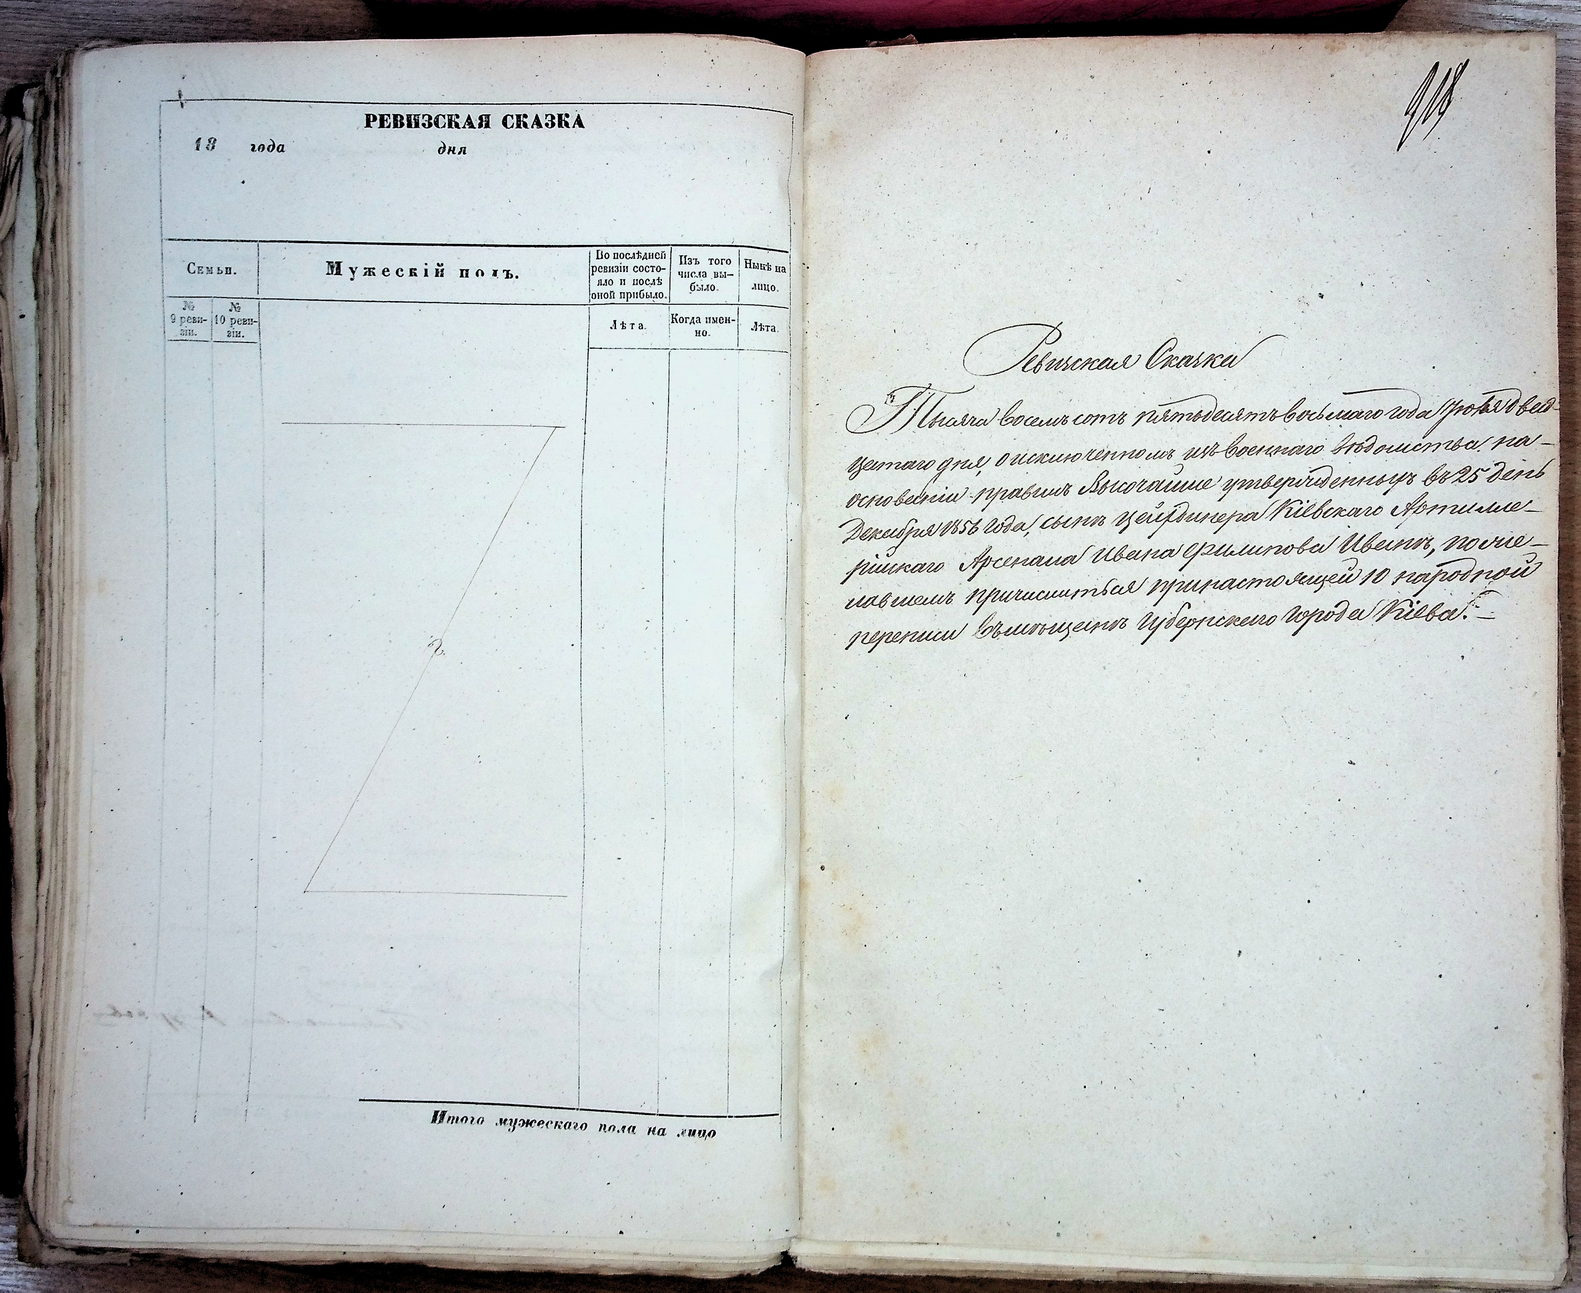 РЕВИЗСКАЯ СКАЗКА
18 года дня
Семьи.
Мужескій полъ.
По послѣдней
ревизіи состо-
яло и послѣ
оной прибыло.
Изъ того
числа вы-
было.
Нынѣ на
лицо.
№
9 реви-
зіи.
№
10 реви-
зіи.
Лѣта.
Когда имен-
но.
Лѣта.
Итого мужескаго пола на лицо
918
Ревизская Сказка
Тысяча восемъ сотъ пятьдесятъ восьмаго года Іюня двад-
цатаго дня, о исключенномъ изъ военнаго вѣдомства на-
основаніи правилъ Высочайше утвержденныхъ въ 25 день
Декабря 1856 года, сынѣ цейгдинера Кіевскаго Артилле-
рійскаго Арсенала Ивана Филипова Иванѣ, поже-
лавшемъ причислиться принастоящей 10 народной
переписи въ мѣщанѣ Губернскаго города Кіева.